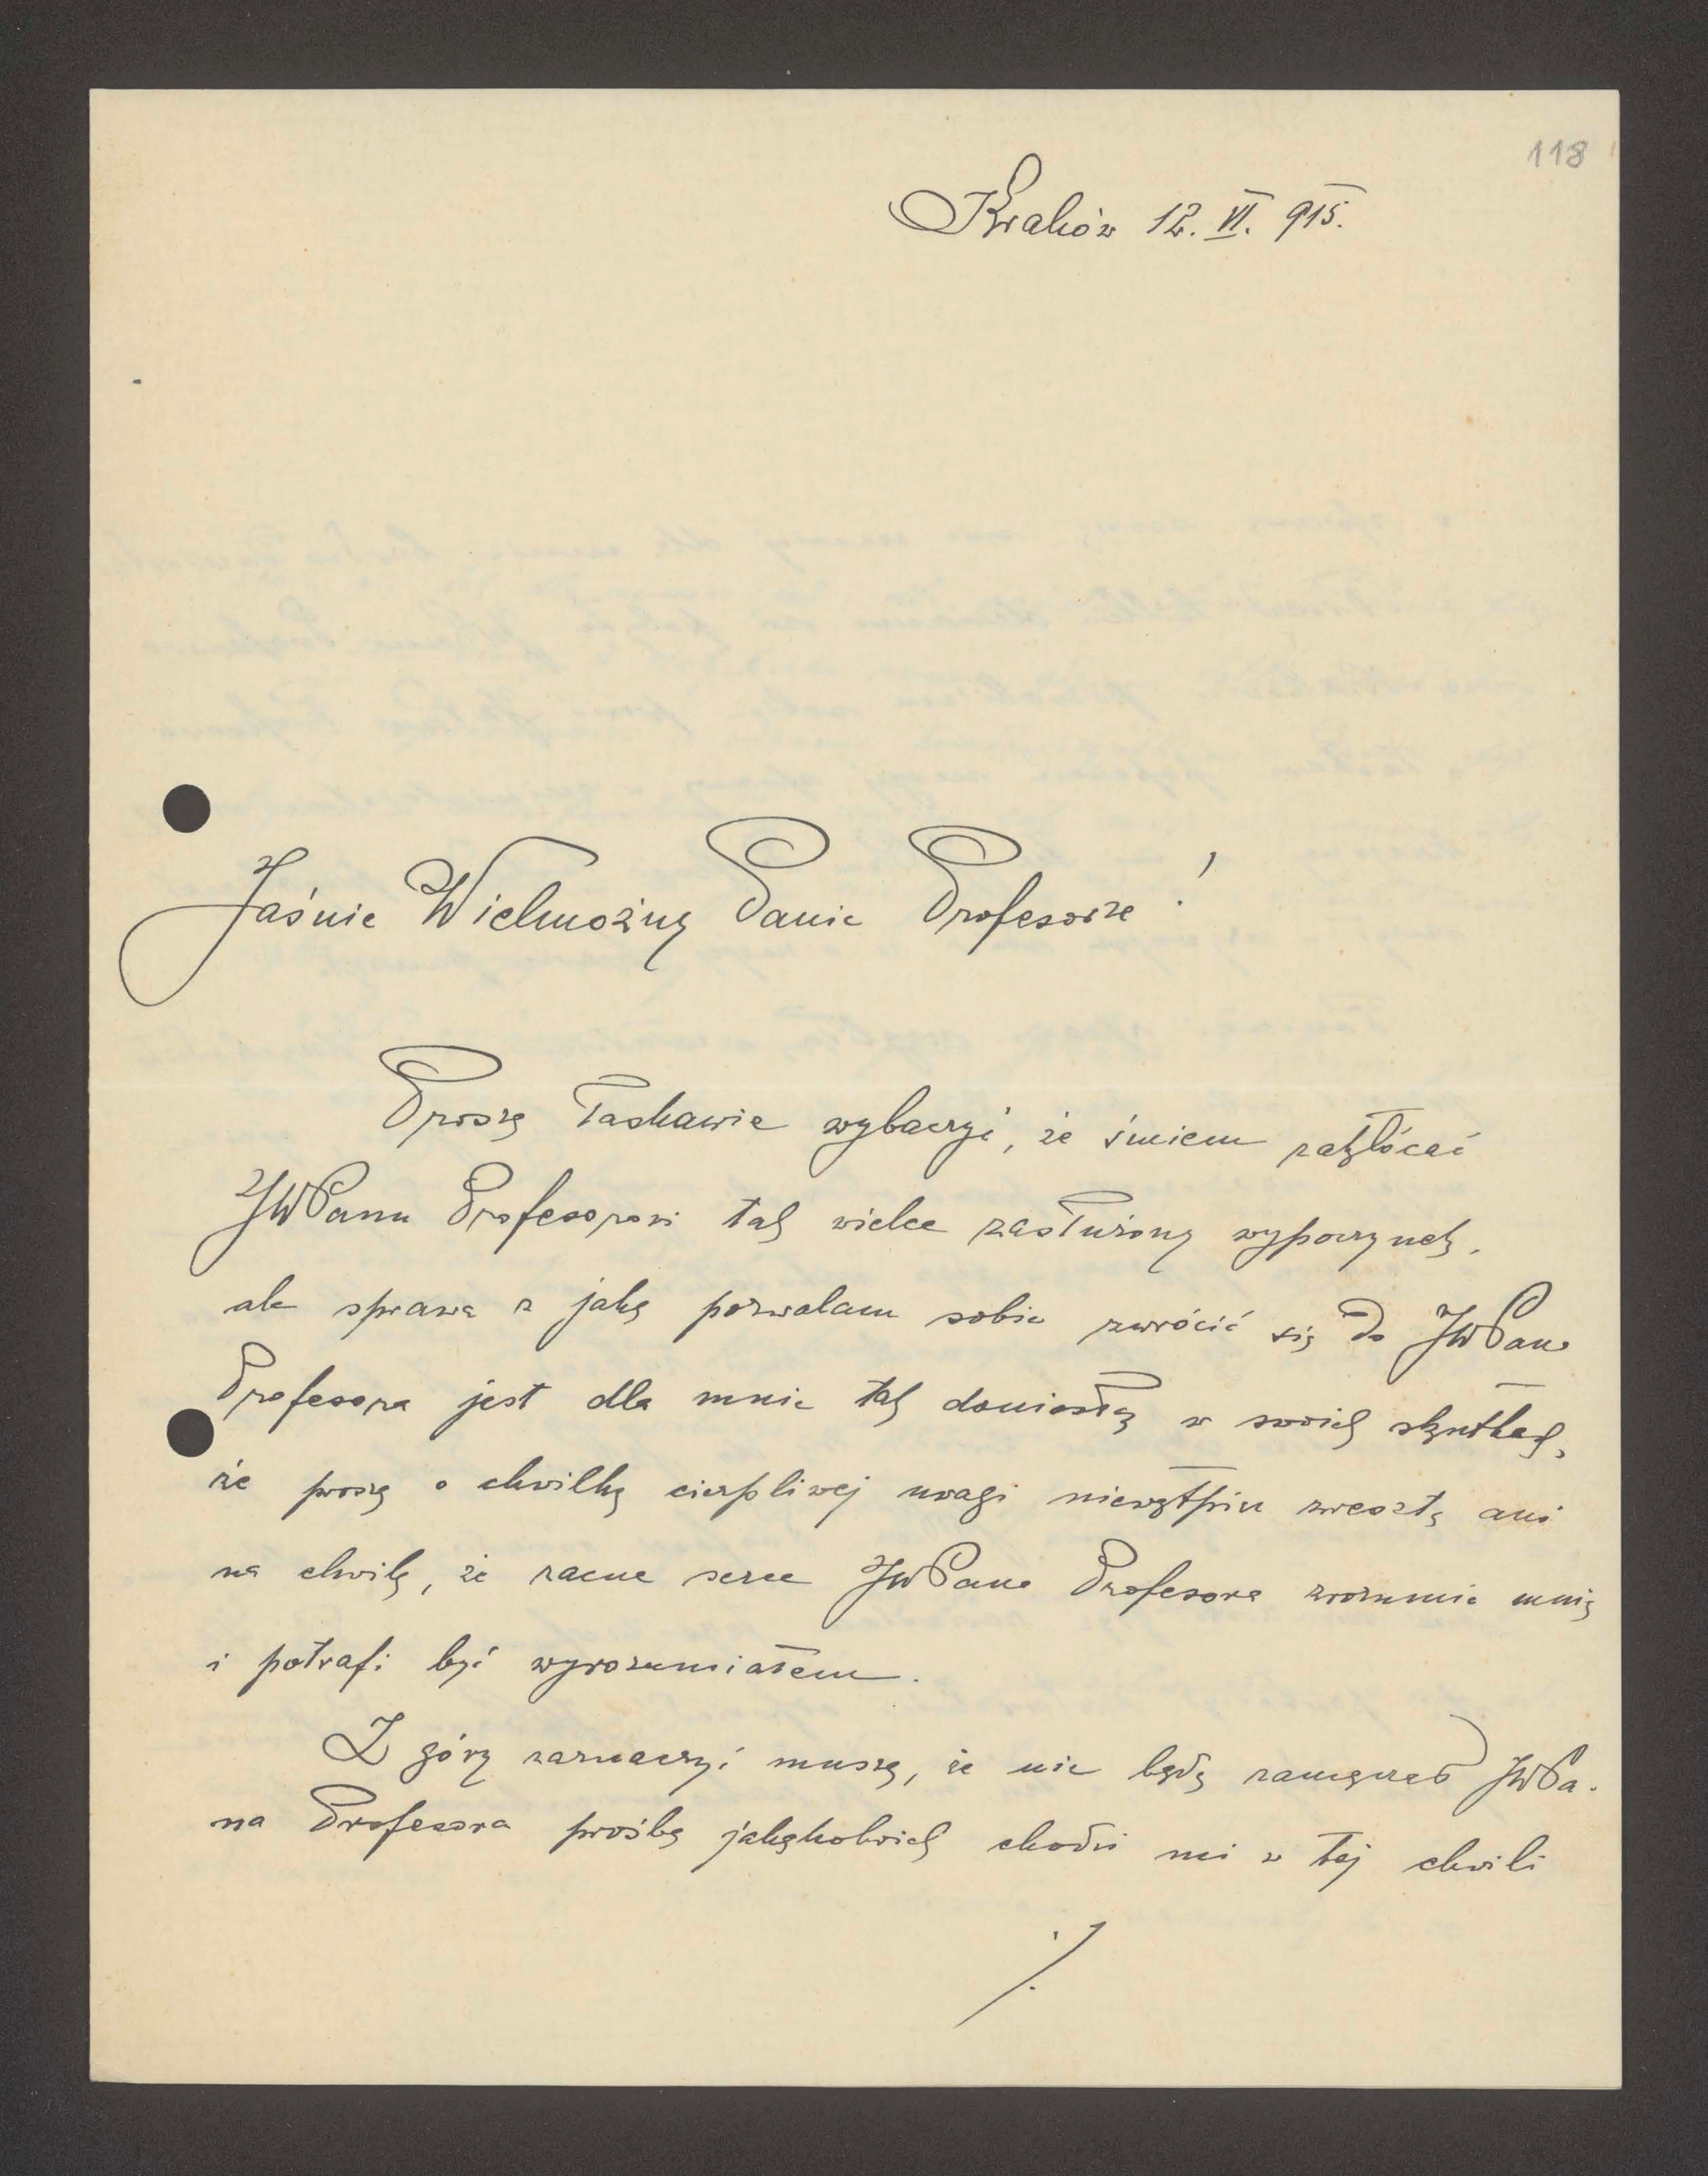 118
Kraków 12. VI. 915.
Jaśnie Wielmożny Panie Profesorze!
Proszę łaskawie wybaczyć, że śmiem zakłócać
JWPanu Profesorowi tak wielce zasłużony wypoczynek,
ale sprawa z jaką pozwalam sobie zwrócić się do JWPana
Profesora jest dla mnie tak doniosłą w swoich skutkach,
że proszę o chwilkę cierpliwej uwagi niewątpiu zresztą ani
na chwilę, że zacne serce JWPana Profesora zrozumie mnię
i potrafi być wyrozumiałem.
Z góry zaznaczyć muszę, że nie będę zamęczał JWPa-
na Profesora prośbą jakąkolwiek chodzi mi w tej chwili
./.